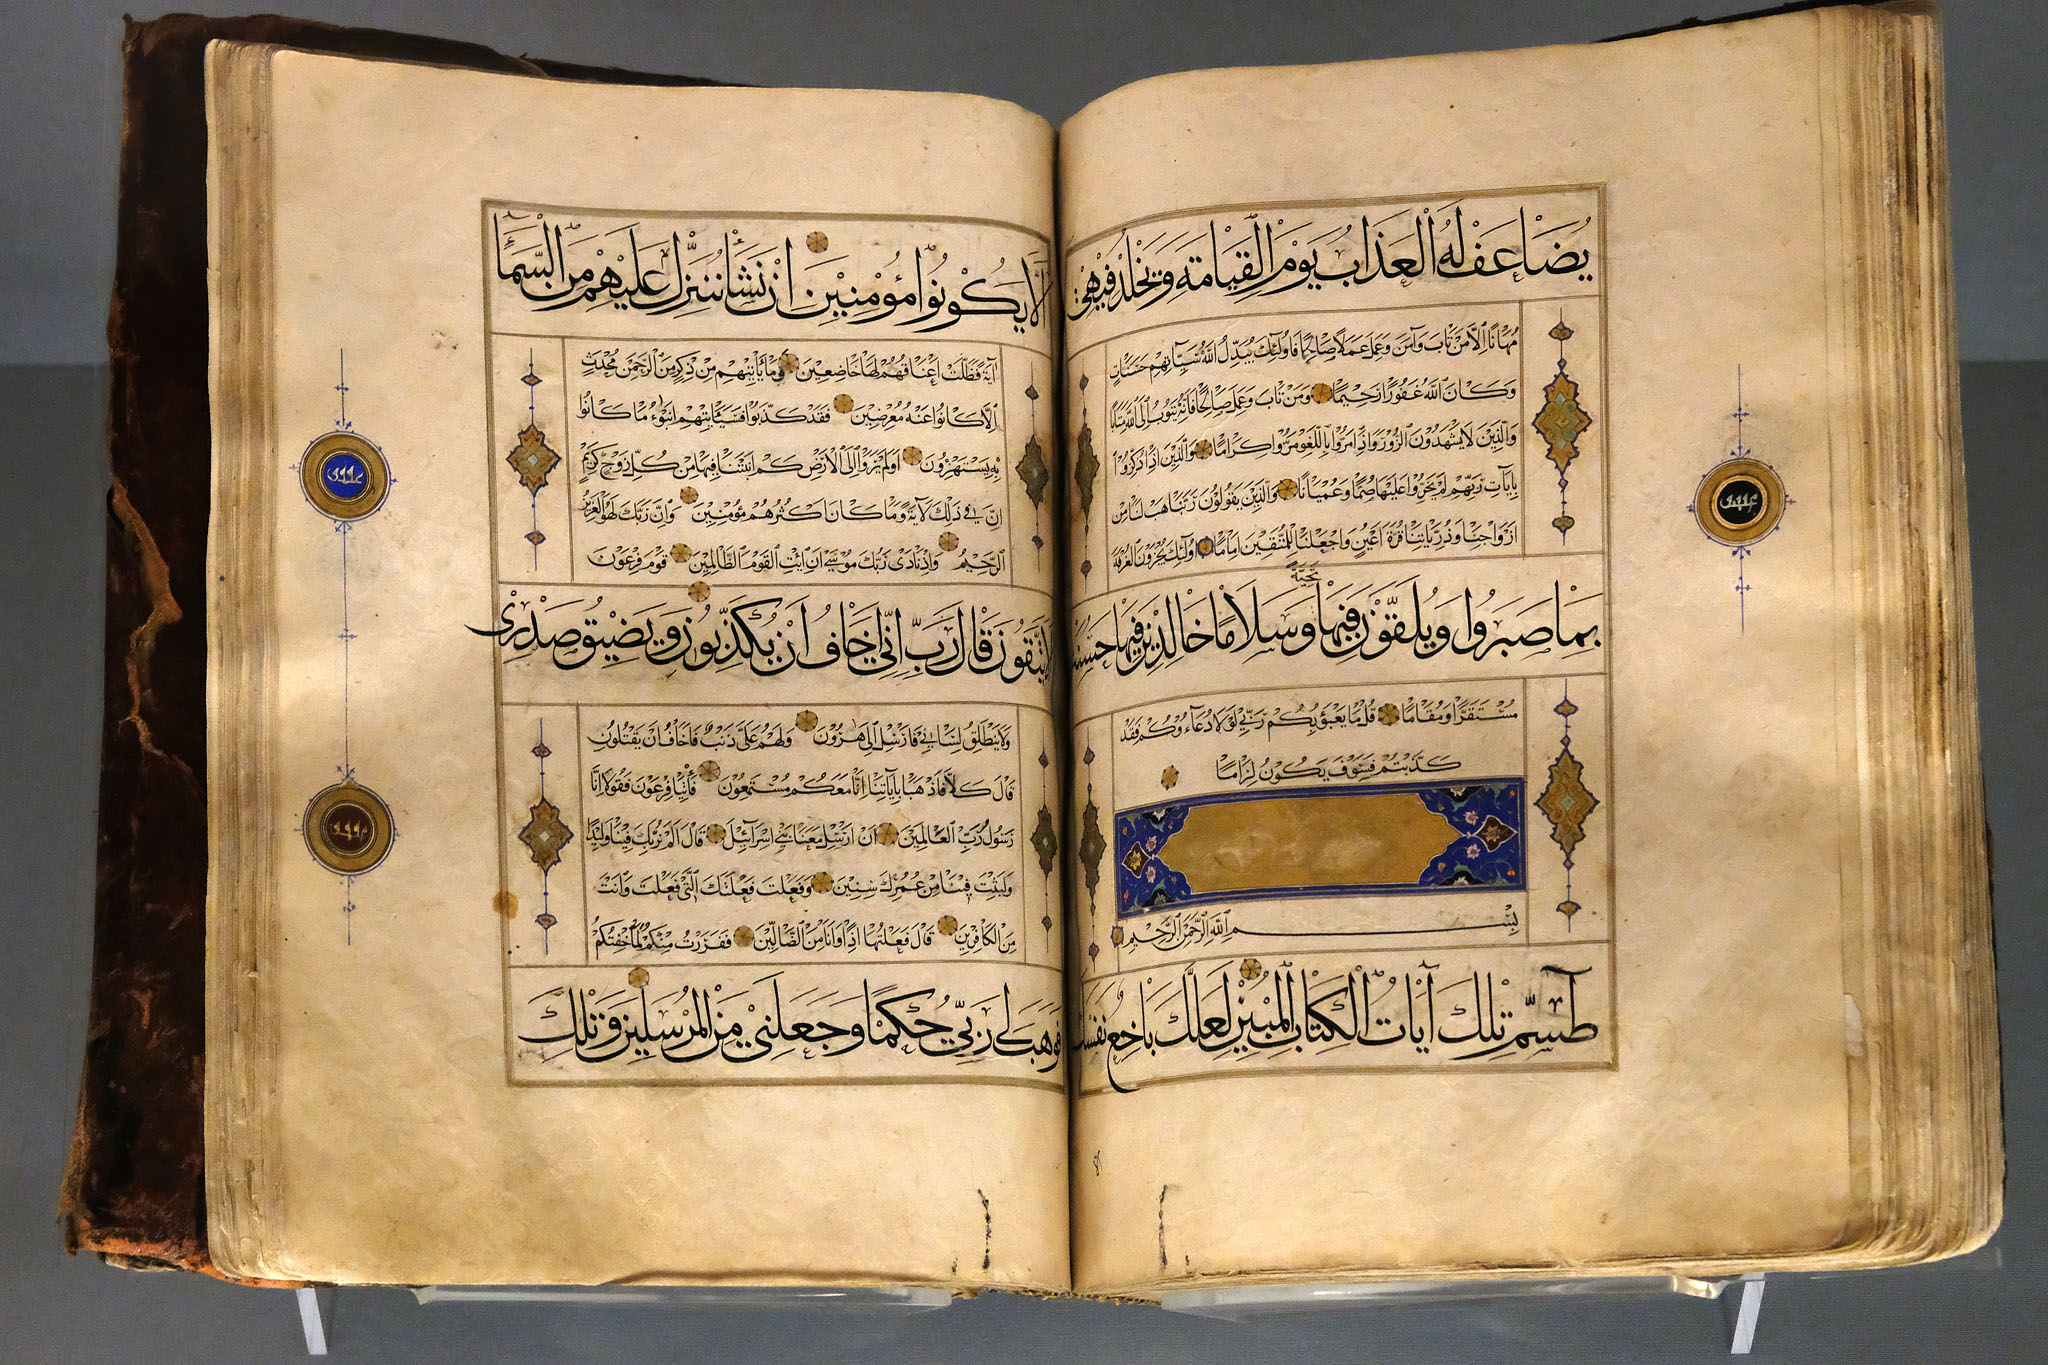 يُضَاعَفْ لَهُ الْعَذَابُ يَوْمَ الْقِيَامَةِ وَيَخْلُدْ فِيهِ
مُهَانًا اِلَّا مَنْ تَابَ وَآمَنَ وَعَمِلَ عَمَلًا صَالِحًا فَاُولَئِكَ يُبَدِّلُ اللَّهُ سَيِّآتِهِمْ حَسَنَاتٍ
وَكَانَ اللَّهُ غَفُورًا رَحِيمًا وَمَنْ تَابَ وَعَمِلَ صَالِحًا فَاِنَّهُ يَتُوبُ اِلَى اللَّهِ مَتَابًا
وَالَّذِينَ لَا يَشْهَدُونَ الزُّورَ وَاِذَا مَرُّوا بِاللَّغْوِ مَرُّوا كِرَامًا وَالَّذِينَ اِذَا ذُكِّرُوا
بِآيَاتِ رَبِّهِمْ لَمْ يَخِرُّوا عَلَيْهَا صُمًّا وَعُمْيَانًا وَالَّذِينَ يَقُولُونَ رَبَّنَا هَبْ لَنَا مِنْ
اَزْوَاجِنَا وَذُرِّيَّاتِنَا قُرَّةَ اَعْيُنٍ وَاجْعَلْنَا لِلْمُتَّقِينَ اِمَامًا اُولَئِكَ يُجْزَوْنَ الْغُرْفَةَ
تَحِيَّةً
بِمَا صَبَرُوا وَيُلَقَّوْنَ فِيهَا وَسَلَامًا خَالِدِينَ فِيهَا حَسُنَتْ
مُسْتَقَرًّا وَمُقَامًا قُلْ مَا يَعْبَؤُ بِكُمْ رَبِّي لَوْلَا دُعَاؤُكُمْ فَقَدْ
كَذَّبْتُمْ فَسَوْفَ يَكُونُ لِزَامًا
بِسْمِ اللَّهِ الرَّحْمَنِ الرَّحِيمِ
طٓسٓمٓ تِلْكَ آيَاتُ الْكِتَابِ الْمُبِينِ لَعَلَّكَ بَاخِعٌ نَفْسَكَ
اَلَّا يَكُونُوا مُؤْمِنِينَ اِنْ نَشَأْ نُنَزِّلْ عَلَيْهِمْ مِنَ السَّمَاءِ
آيَةً فَظَلَّتْ اَعْنَاقُهُمْ لَهَا خَاضِعِينَ وَمَا يَأْتِيهِمْ مِنْ ذِكْرٍ مِنَ الرَّحْمَنِ مُحْدَثٍ
اِلَّا كَانُوا عَنْهُ مُعْرِضِينَ فَقَدْ كَذَّبُوا فَسَيَأْتِيهِمْ اَنْبَؤُا مَا كَانُوا
بِهِ يَسْتَهْزِؤُنَ اَوَلَمْ يَرَوْا اِلَى الْاَرْضِ كَمْ اَنْبَتْنَا فِيهَا مِنْ كُلِّ زَوْجٍ كَرِيمٍ
اِنَّ فِي ذَلِكَ لَآيَةً وَمَا كَانَ اَكْثَرُهُمْ مُؤْمِنِينَ وَاِنَّ رَبَّكَ لَهُوَ الْعَزِيزُ
الرَّحِيمُ وَاِذْ نَادَى رَبُّكَ مُوسَى اَنِ ائْتِ الْقَوْمَ الظَّالِمِينَ قَوْمَ فِرْعَوْنَ
اَلَا يَتَّقُونَ قَالَ رَبِّ اِنِّي اَخَافُ اَنْ يُكَذِّبُونِ وَيَضِيقُ صَدْرِي
وَلَا يَنْطَلِقُ لِسَانِي فَاَرْسِلْ اِلَى هَرُونَ وَلَهُمْ عَلَيَّ ذَنْبٌ فَاَخَافُ اَنْ يَقْتُلُونِ
قَالَ كَلَّا فَاذْهَبَا بِآيَاتِنَا اِنَّا مَعَكُمْ مُسْتَمِعُونَ فَأْتِيَا فِرْعَوْنَ فَقُولَا اِنَّا
رَسُولُ رَبِّ الْعَالَمِينَ اَنْ اَرْسِلْ مَعَنَا بَنِي اِسْرَائِيلَ قَالَ اَلَمْ نُرَبِّكَ فِينَا وَلِيدًا
وَلَبِثْتَ فِينَا مِنْ عُمُرِكَ سِنِينَ وَفَعَلْتَ فَعْلَتَكَ الَّتِي فَعَلْتَ وَاَنْتَ
مِنَ الْكَافِرِينَ قَالَ فَعَلْتُهَا اِذًا وَاَنَا مِنَ الضَّالِّينَ فَفَرَرْتُ مِنْكُمْ لَمَّا خِفْتُكُمْ
فَوَهَبَ لِي رَبِّي حُكْمًا وَجَعَلَنِي مِنَ الْمُرْسَلِينَ وَتِلْكَ